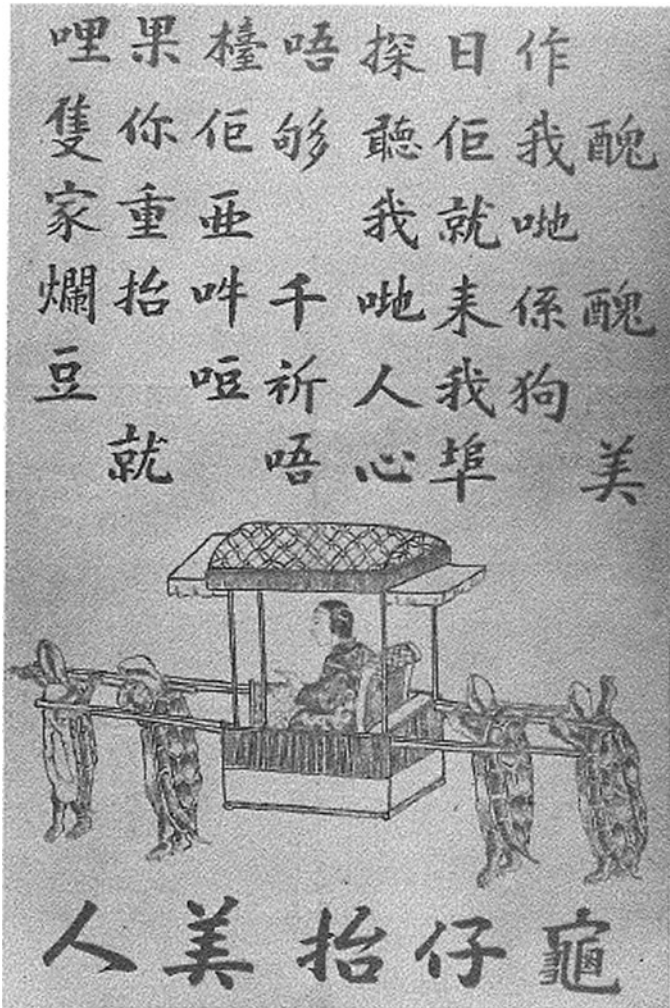 醜 醜 美
作我哋係狗
日佢就来我埠
探聽我哋人心
唔够 千祈唔
檯佢亜吽哣
果你重抬 就
哩隻家爛豆
龜仔抬美人